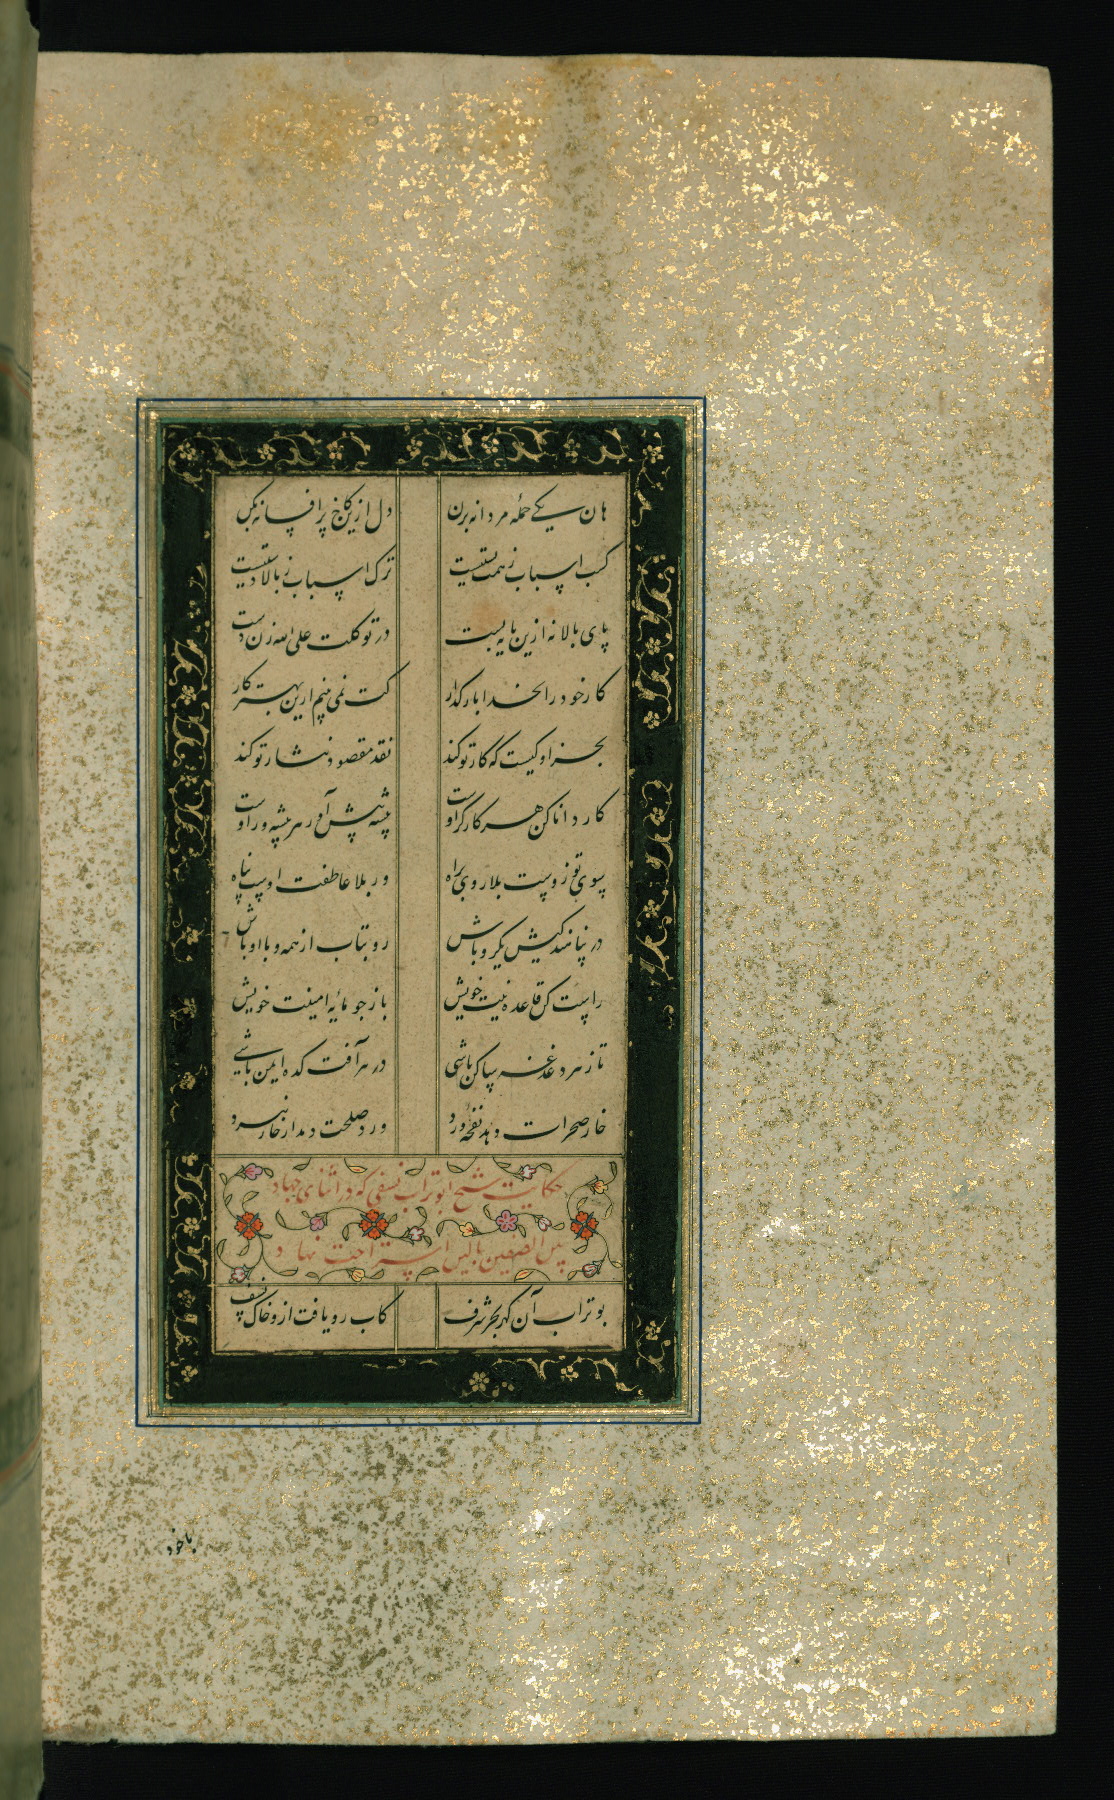 هان یکی حمله مردانه بزن دل ازین کاخ پر افسانه بکن
کسب اسباب ز همت پستیست ترک اسباب ز بالا دستیست
پای بالا نه ازین پایه پست در توکلت علی الله زن دست
کار خود را بخدا باز گذار کت نمی بینم ازین بهتر کار
بجز او کیست که کار تو کند نقد مقصود نثار تو کند
کار دانا کن هر کار گر اوست پیشه پیش آور هر پیشه ور اوست
سوی تو ز وست بلا روی براه ور بلا عاطفت اوست پناه
در نیازمند کیش یکرو باش رو بتاب از همه و با او باش
راست کن قاعده نیت خویش باز جو مایه امنیت خویش
تا ز هر دغدغه ساکن باشی در هر آفت کده ایمن باشی
خار صحرات دهد نفحه ورد ورد صلحت دمد از خار نبرد
حکایت شیخ ابوتراب نسفی که در اثنای جهاد
بین الصفین بالین استراحت نهاد
بوتراب آن گهر بحر شرف کاب رو یافت ازو خاک نسف
باخود